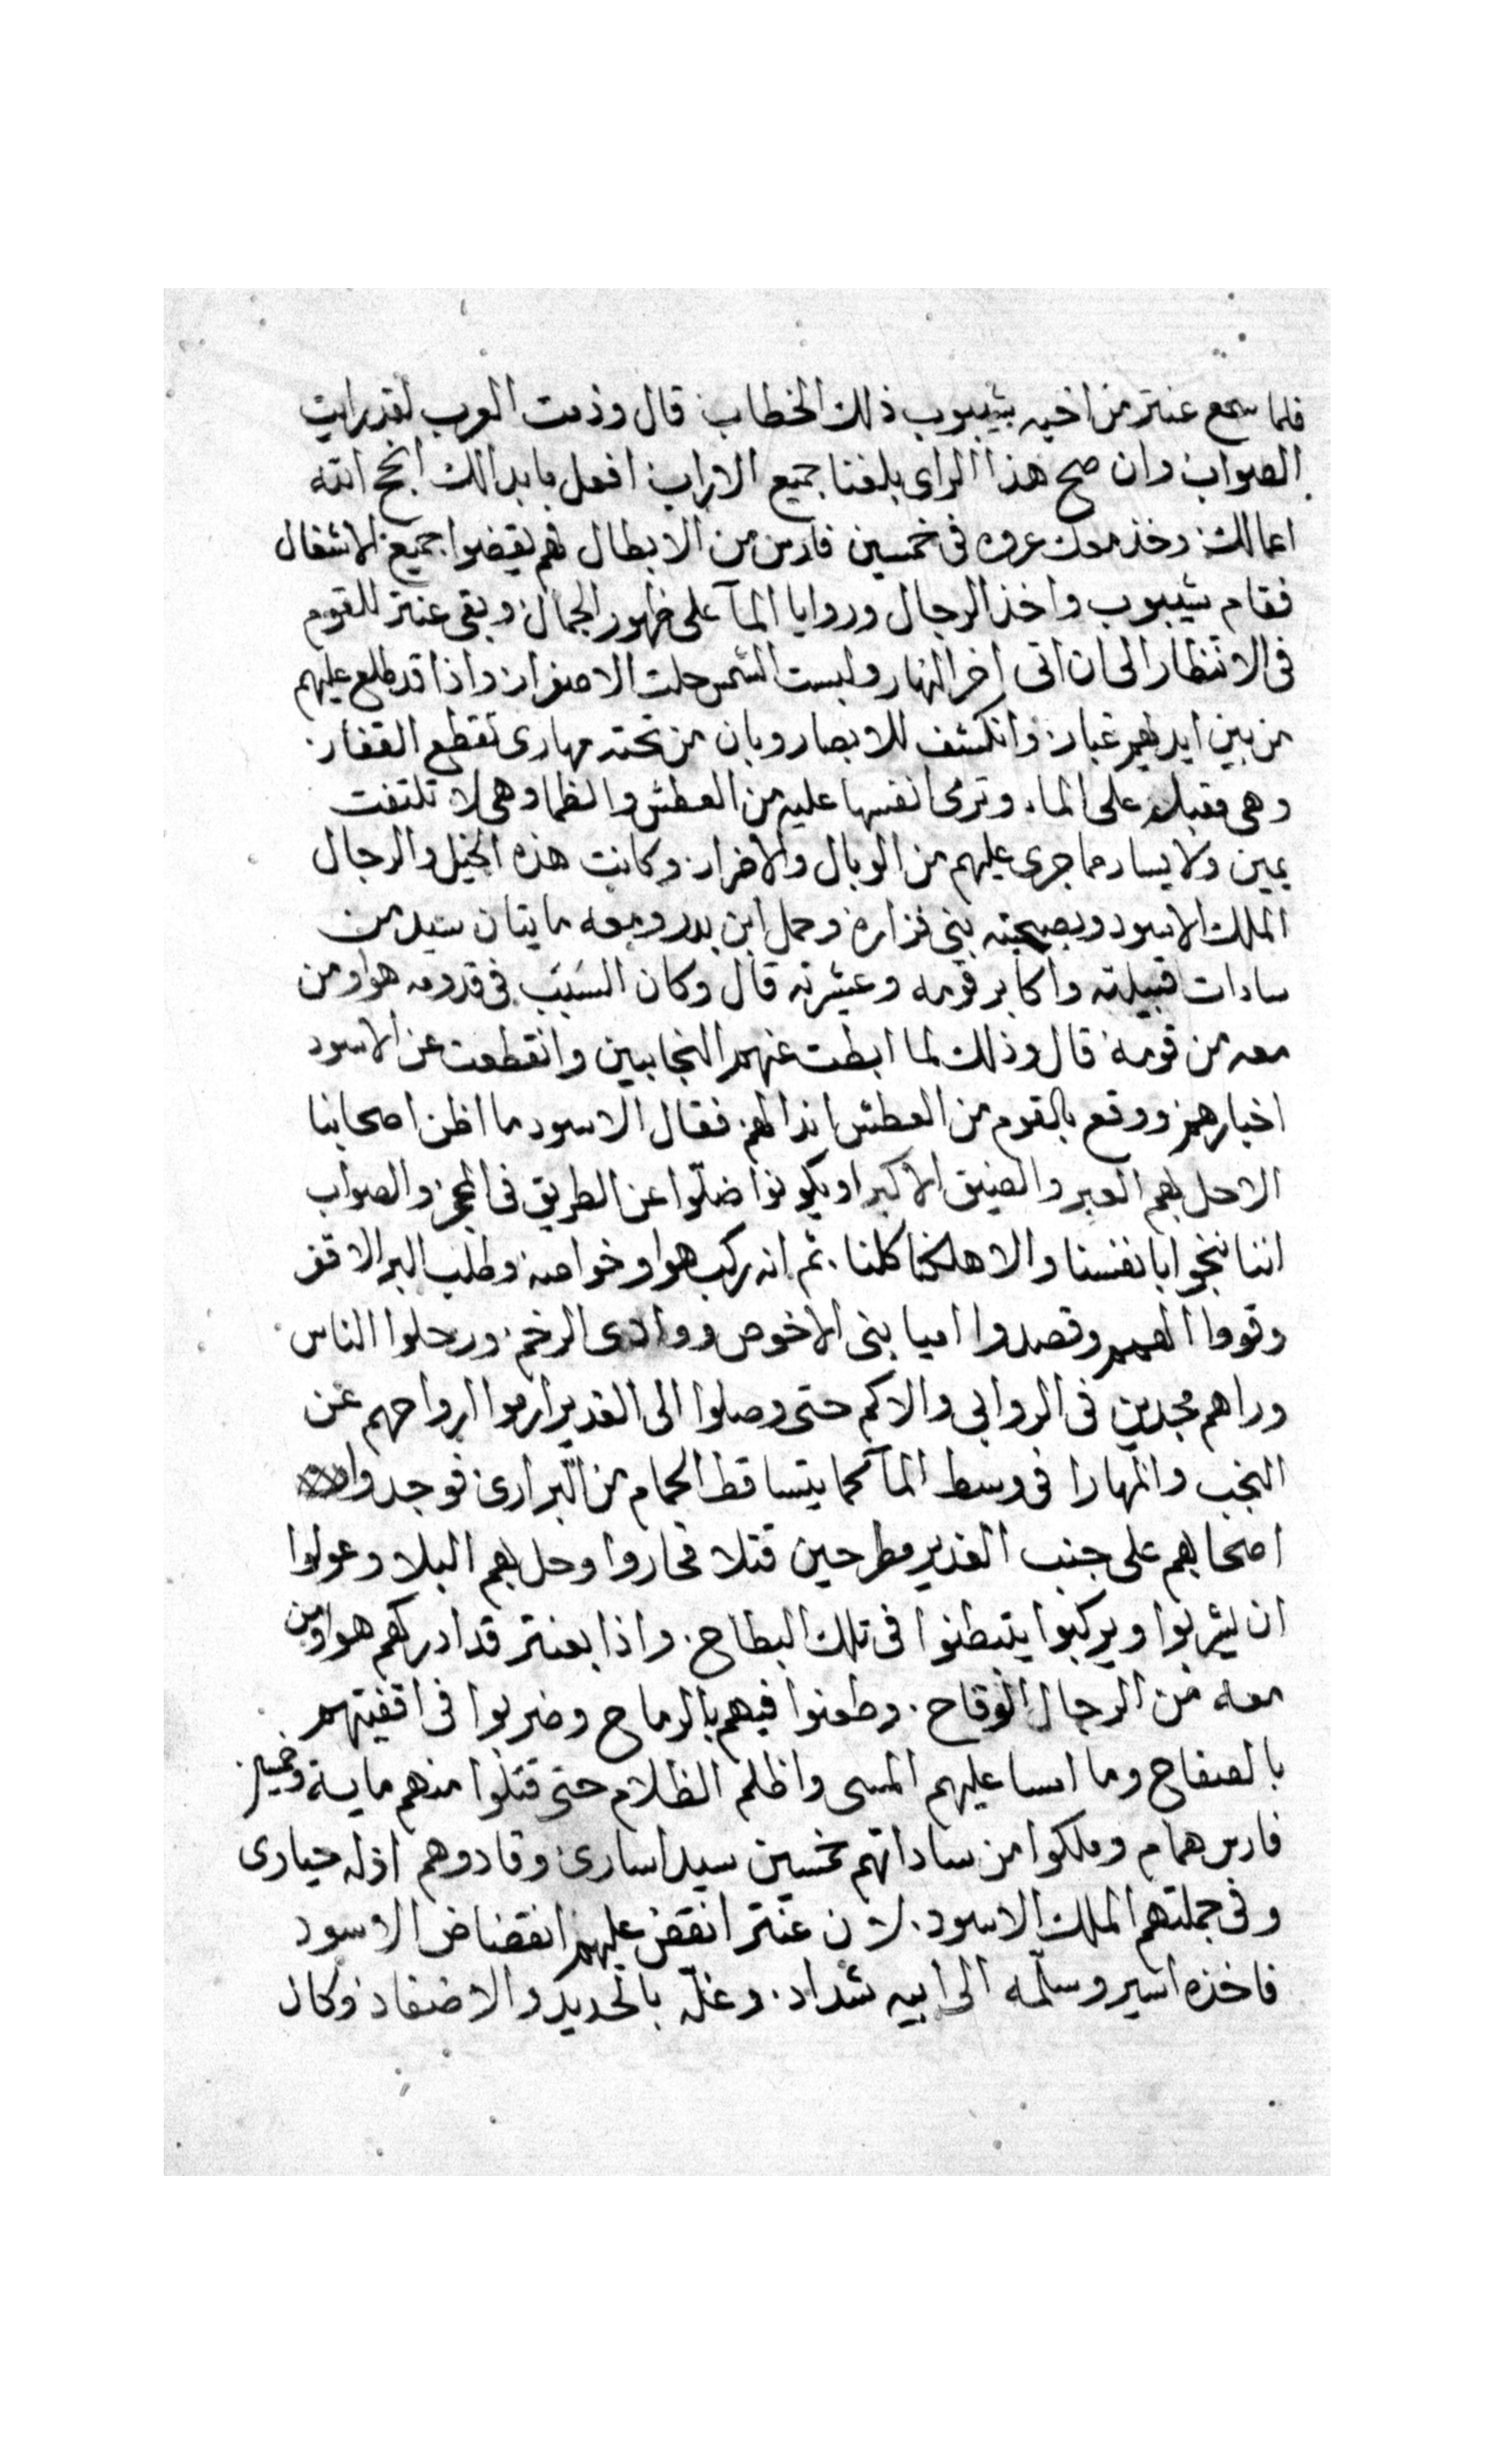 فلما سمع عنتر من اخيه شيبوب ذلك الخطاب قال وذمت العرب لقد رايت
الصواب وان صح هذا الراى بلغنا جميع الاراب افعل ما بدالك انجح الله
اعمالك وخذ معك عروه فى خمسين فارس من الابطال فهم يقضوا جميع الاشغال
فقام شيبوب واخذ الرجال وروايا المآ على ظهور الجمال وبقى عنتر للقوم
فى الانتظار الى ان اتى اخر النهار ولبست الشمس حلت الاصفرار واذا قد طلع عليهم
من بين ايديهم غبار وانكشف للابصار وبان من تحته مهارى تقطع القفار
وهى مقبله على الماء وترمى انفسها عليه من العطش والظما وهى لا تلتفت
يمين ولا يسار مما جرى عليهم من الوبال والاضرار وكانت هذه الخيل والرجال
الملك الاسود وبصحبته بنى فزاره وحمل ابن بدر ومعه مايتان سيد من
سادات قبيلته واكابر قومه وعشرته قال وكان السبب فى قدومه هوا ومن
معه من قومه قال وذلك لما ابطت عنهم النجابين وانقطعت عن الاسود
اخبارهم ووقع بالقوم من العطش اندالهم فقال الاسود ما اظن اصحابنا
الاحل بهم العبر والضيق الاكبر او يكونوا ضلّوا عن الطريق فى والصواب
اننا ننجوا بانفسنا والا هلكنا كلنا . ثم انه ركب هوا وخواصه وطلب البر الاقفر
وقووا وقصدوا امياه بنى الاخوص ووادى الرخم ورحلوا الناس
وراهم مجدين فى الروابى والاكم حتى وصلوا الى الغدير ارموا ارواحهم عن
النجب والمهارا فى وسط المآ كما يتساقط الحمام من البرارى فوجدوا
اصحابهم على جنب الغدير مطرحين قتلا فحاروا وحل بهم البلا وعولوا
ان يشربوا ويركبوا يتبطنوا فى تلك البطاح . واذا بعنتر قد ادركهم هوا ومن
معه من الرجال الوقاح . وطعنوا فيهم بالرماح وضربوا فى اقفيتهم
بالصفاح وما امسا عليهم المسى واظلم الظلام حتى قتلوا منهم ماية وخمسين
فارس همام وملكوا من ساداتهم خمسين سيد اسارى وقادوهم اذله حيارى
وفى جملتهم الملك الاسود . لان عنتر انقض عليهم انقضاض الاسود
فاخذه اسير وسلّمه الى ابيه شداد . وغلّه بالحديد والاصفاد وكان